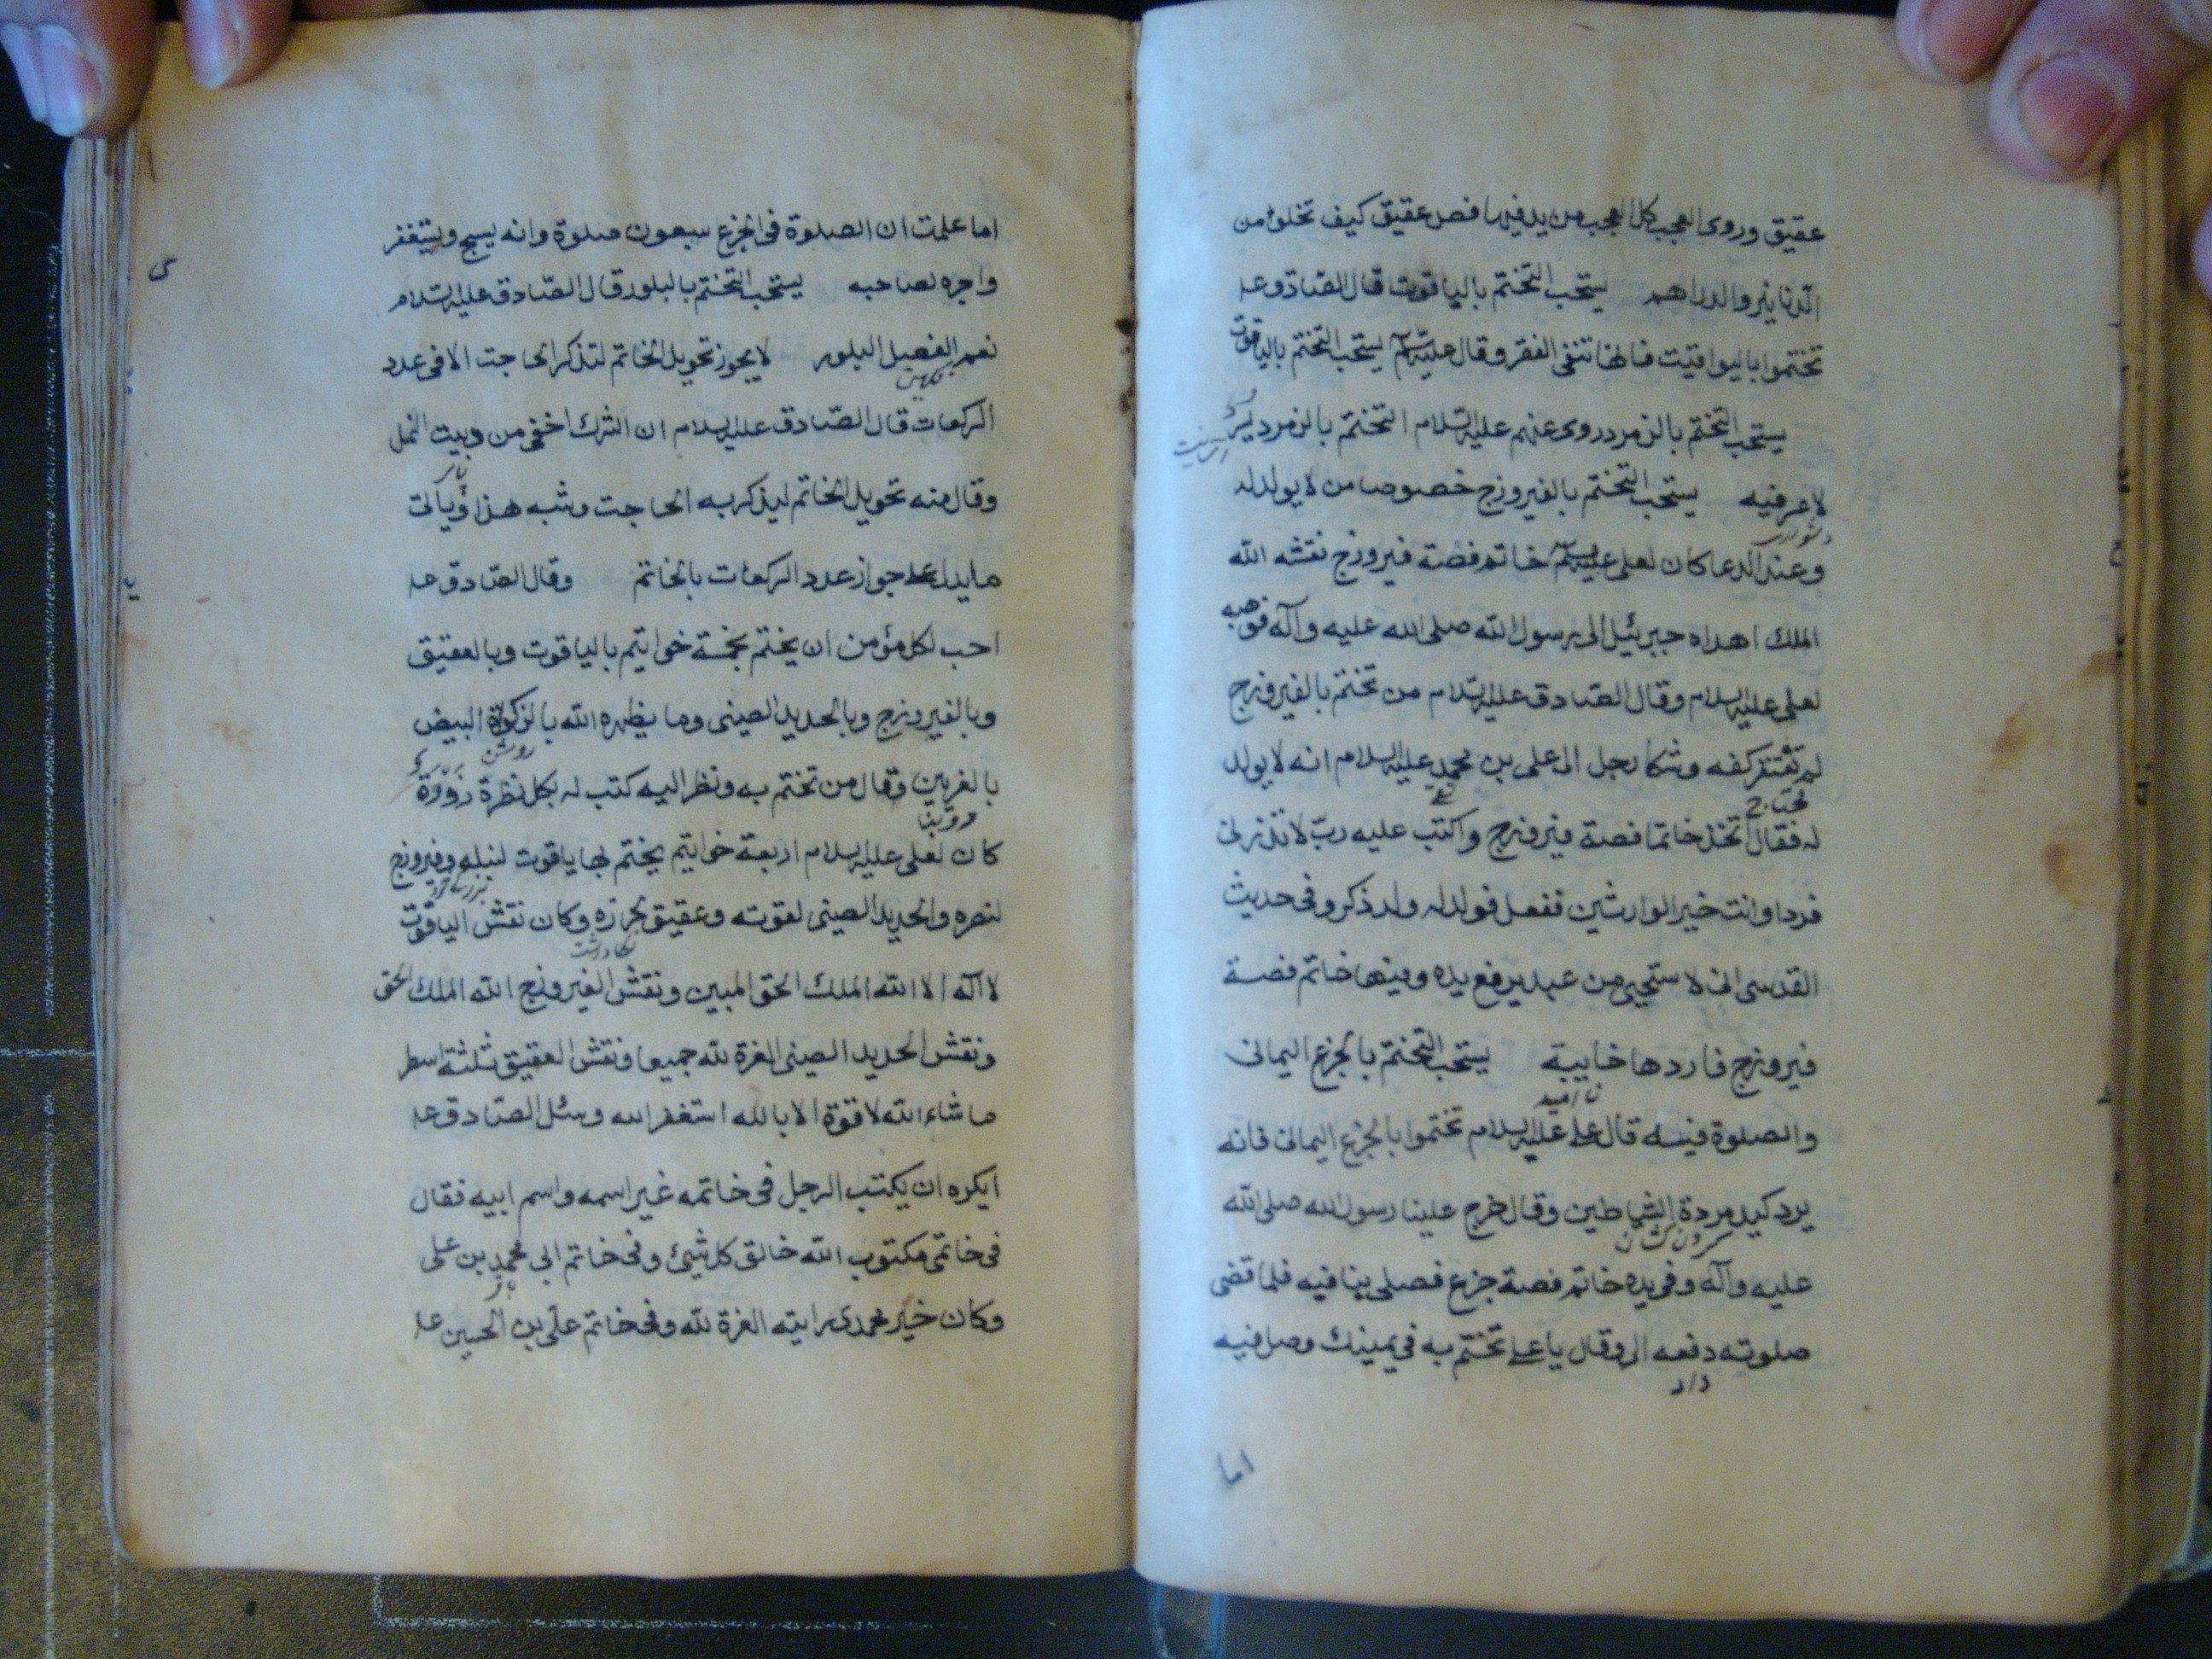 عقيق وروى العجب كل العجب من يد فيها فص عقيق كيف تخلو من
الدنانير والدراهم يستحب التختم بالياقوت قال الصّادق عل
تختموا باليواقيت فانها تنفى الفقر وقال عليه السّلم يستحب التختم بالياقوت
يستحب التختم بالزمرد روى عنهم عليه السّلام التختم بالزمرد يسر
لا عسر فيه يستحب التختم بالفيروزج خصوصا من لا يولد له
دشوارى
وعند الدعا كان لعلى عليه السلم خاتم فصه فيروزج نقشه الله
الملك اهداه جبرئيل الى رسول الله صلى الله عليه وآله فوهبه
لعلى عليه السلام وقال الصّادق عليه السّلام من تختم بالفيروزج
لم تفتقر كفه وشكا رجل الى على بن محمد عليه السلام انه لا يولد
محتاج
له فقال اتخذ خاتما فصه فيروزج واكتب عليه ربّ لا تذرنى
فردا وانت خير الوارثين ففعل فولد له ولد ذكر وفى حديث
القدسى انى لاستحيى من عبد يرفع يده وفيها خاتم فصه
فيروزج فاردها خايبة يستحب التختم بالجزع اليمانى
نا اميد
والصلوة فيه قال على عليه السلام تختموا بالجزع اليمانى فانه
يرد كيد مردة الشياطين وقال خرج علينا رسول الله صلى الله
سركشان
عليه وآله وفى يده خاتم فصه جزع فصلى بنا فيه فلما قضى
صلوته دفعه الى وقال يا على تختم به فى يمينك وصل فيه
داد
اما
اما علمت ان الصلوة فى الجزع سبعون صلوة وانه يسبح ويستغفر
واجره لصاحبه يستحب التختم بالبلور قال الصّادق عليه السّلام
نعم الفص البلور لا يجوز تحويل الخاتم لتذكر الحاجت الا فى عدد
نكين
الركعات قال الصّادق عليه السلام ان الشرك اخفى من دبيب النمل
وقال منه تحويل الخاتم ليذكر به الحاجت وشبه هذا ويأتى
ما يدل على جواز عدد الركعات بالخاتم وقال الصّادق عل
احب لكل مؤمن ان يختم بخمسة خواتيم بالياقوت وبالعقيق
وبالفيروزج وبالحديد الصينى وما يظهره الله بالذكوات البيض
روشن
بالغريين وقال من تختم به ونظر اليه كتب له بكل نظرة زورة
كان لعلى عليه السلام اربعة خواتيم يختم بها ياقوت لنبله وفيروزج
لنصره والحديد الصينى لقوته وعقيق لحرزه وكان نقش الياقوت
لا اله الا الله الملك الحق المبين ونقش الفيروزج الله الملك الحق
ونقش الحديد الصينى العزة لله جميعا ونقش العقيق ثلثة اسطر
ما شاء الله لا قوة الا بالله استغفر الله وسئل الصّادق عل
ايكره ان يكتب الرجل فى خاتمه غير اسمه واسم ابيه فقال
فى خاتمى مكتوب الله خالق كل شيئ وفى خاتم ابى محمد بن على
وكان خير محمدى رايته العزة لله وفى خاتم على بن الحسين عل